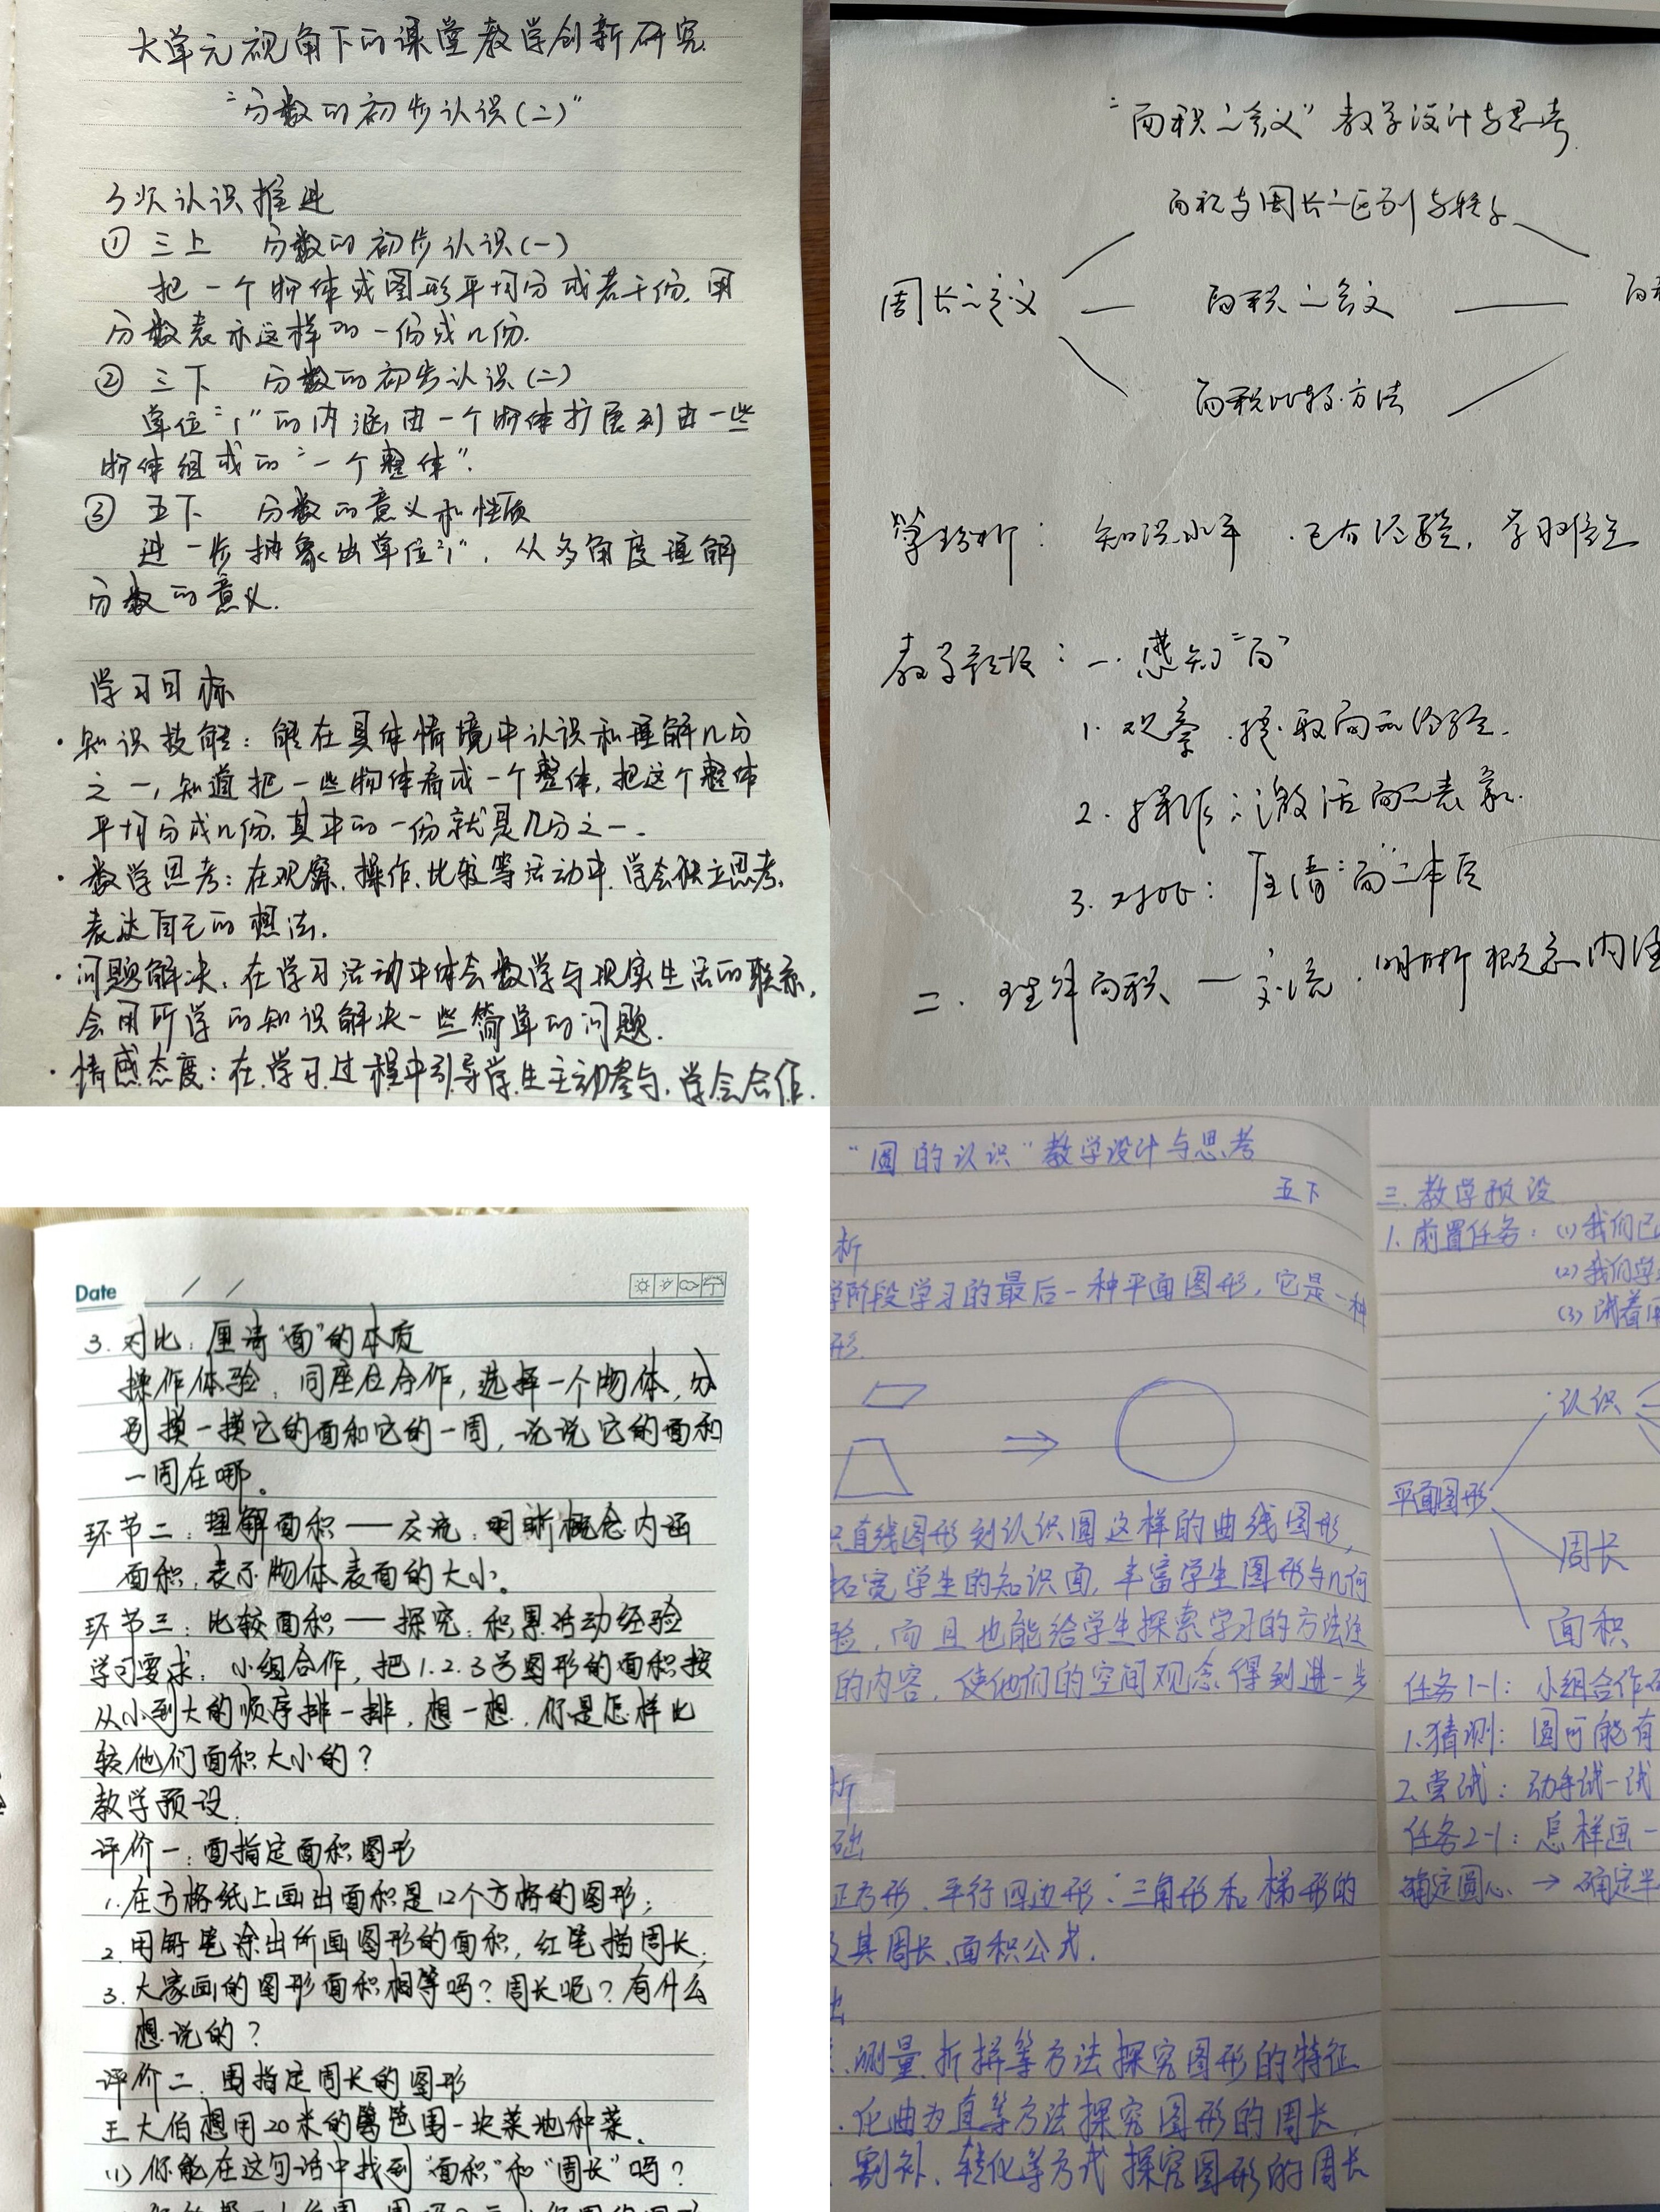 大单元视角下的课堂教学创新研究
“分数的初步认识(二)”
3次认识推进
① 三上 分数的初步认识(一)
把一个物体或图形平均分成若干份,用
分数表示这样的一份或几份.
② 三下 分数的初步认识(二)
单位“1”的内涵由一个物体扩展到由一些
物体组成的“一个整体”.
③ 五下 分数的意义和性质
进一步抽象出单位“1”,从多角度理解
分数的意义.
学习目标
·知识技能:能在具体情境中认识和理解几分
之一,知道把一些物体看成一个整体,把这个整体
平均分成几份,其中的一份就是几分之一.
·数学思考:在观察、操作、比较等活动中,学会独立思考,
表达自己的想法.
·问题解决:在学习活动中体会数学与现实生活的联系,
会用所学的知识解决一些简单的问题.
·情感态度:在学习过程中引导学生主动参与,学会合作.
“面积之意义”教学设计与思考
面积与周长之区别与联系
周长之定义 — 面积之意义 —
面积比较方法
学情分析: 知识水平 已有经验, 学习难点
教学预设: 一. 感知“面”
1. 观察 面之经验.
2. 操作:激活面之表象.
3. 对比: 厘清“面”之本质
二. 理解面积 — 交流,明晰概念内涵
Date / /
3. 对比:厘清“面”的本质
操作体验:同座位合作,选择一个物体,分
别摸一摸它的面和它的一周,说说它的面和
一周在哪。
环节二:理解面积——交流:明晰概念内涵
面积:表示物体表面的大小。
环节三:比较面积——探究:积累活动经验
学习要求:小组合作,把1.2.3号图形的面积按
从小到大的顺序排一排,想一想,你是怎样比
较他们面积大小的?
教学预设:
评价一:画指定面积图形
1.在方格纸上画出面积是12个方格的图形;
2.用铅笔涂出所画图形的面积,红笔描周长;
3.大家画的图形面积相等吗?周长呢?有什么
想说的?
评价二:围指定周长的图形
王大伯想用20米的篱笆围一块菜地种菜.
(1)你能在这句话中找到“面积”和“周长”吗?
“圆的认识”教学设计与思考
五下
析
学阶段学习的最后一种平面图形,它是一种
形.
直线图形到认识圆这样的曲线图形,
拓宽学生的知识面,丰富学生图形与几何
验,而且也能给学生探索学习的方法注
的内容,使他们的空间观念得到进一步
析
础
正方形、平行四边形、三角形和梯形的
及其周长、面积公式.
、测量、折拼等方法探究图形的特征
、化曲为直等方法探究图形的周长
、割补、转化等方式探究图形的周长
三.教学预设
1.前置任务:(1)我们已
(2)我们学
(3)试着用
认识
平面图形
周长
面积
任务1-1:小组合作研
1.猜测:圆可能有
2.尝试:动手试一试
任务2-1:怎样画一
确定圆心 → 确定半